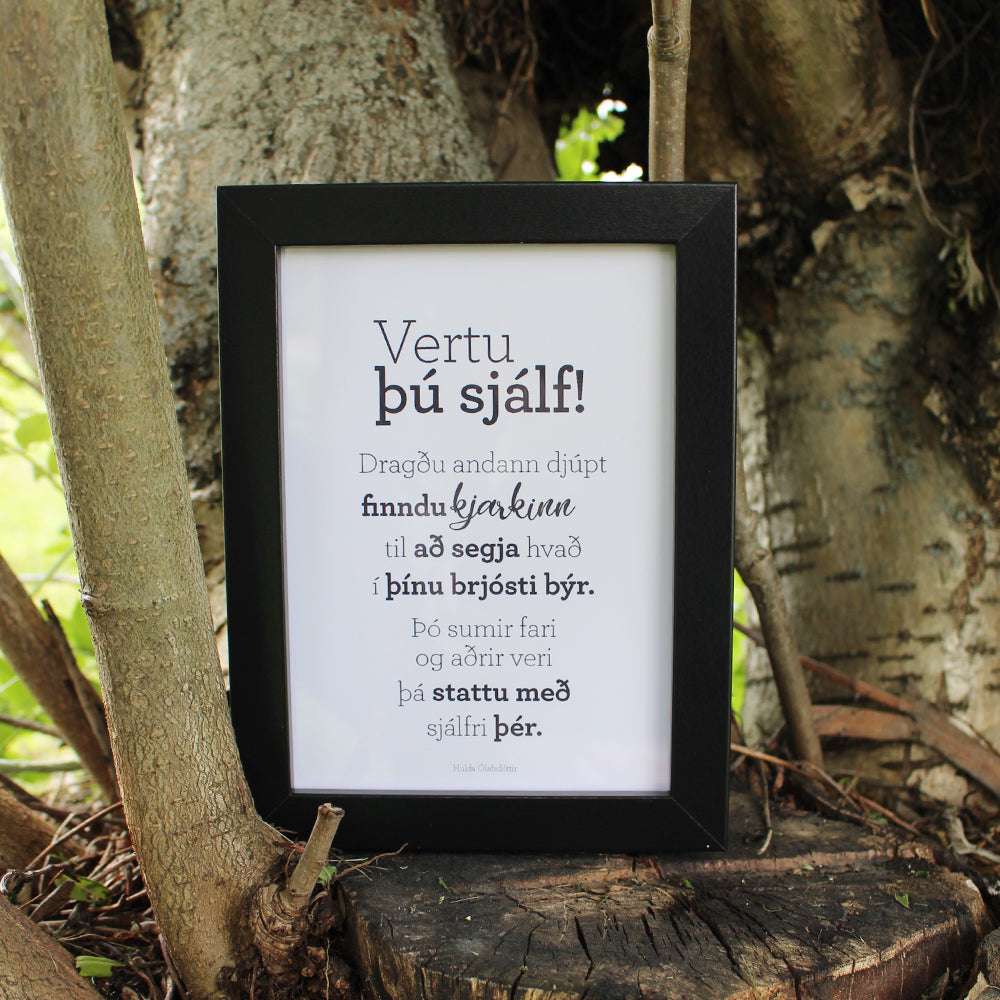 Vertu
þú sjálf!
Dragðu andann djúpt
finndu kjarkinn
til að segja hvað
í þínu brjósti býr.
Þó sumir fari
og aðrir veri
þá stattu með
sjálfri þér.
Hulda Ólafsdóttir